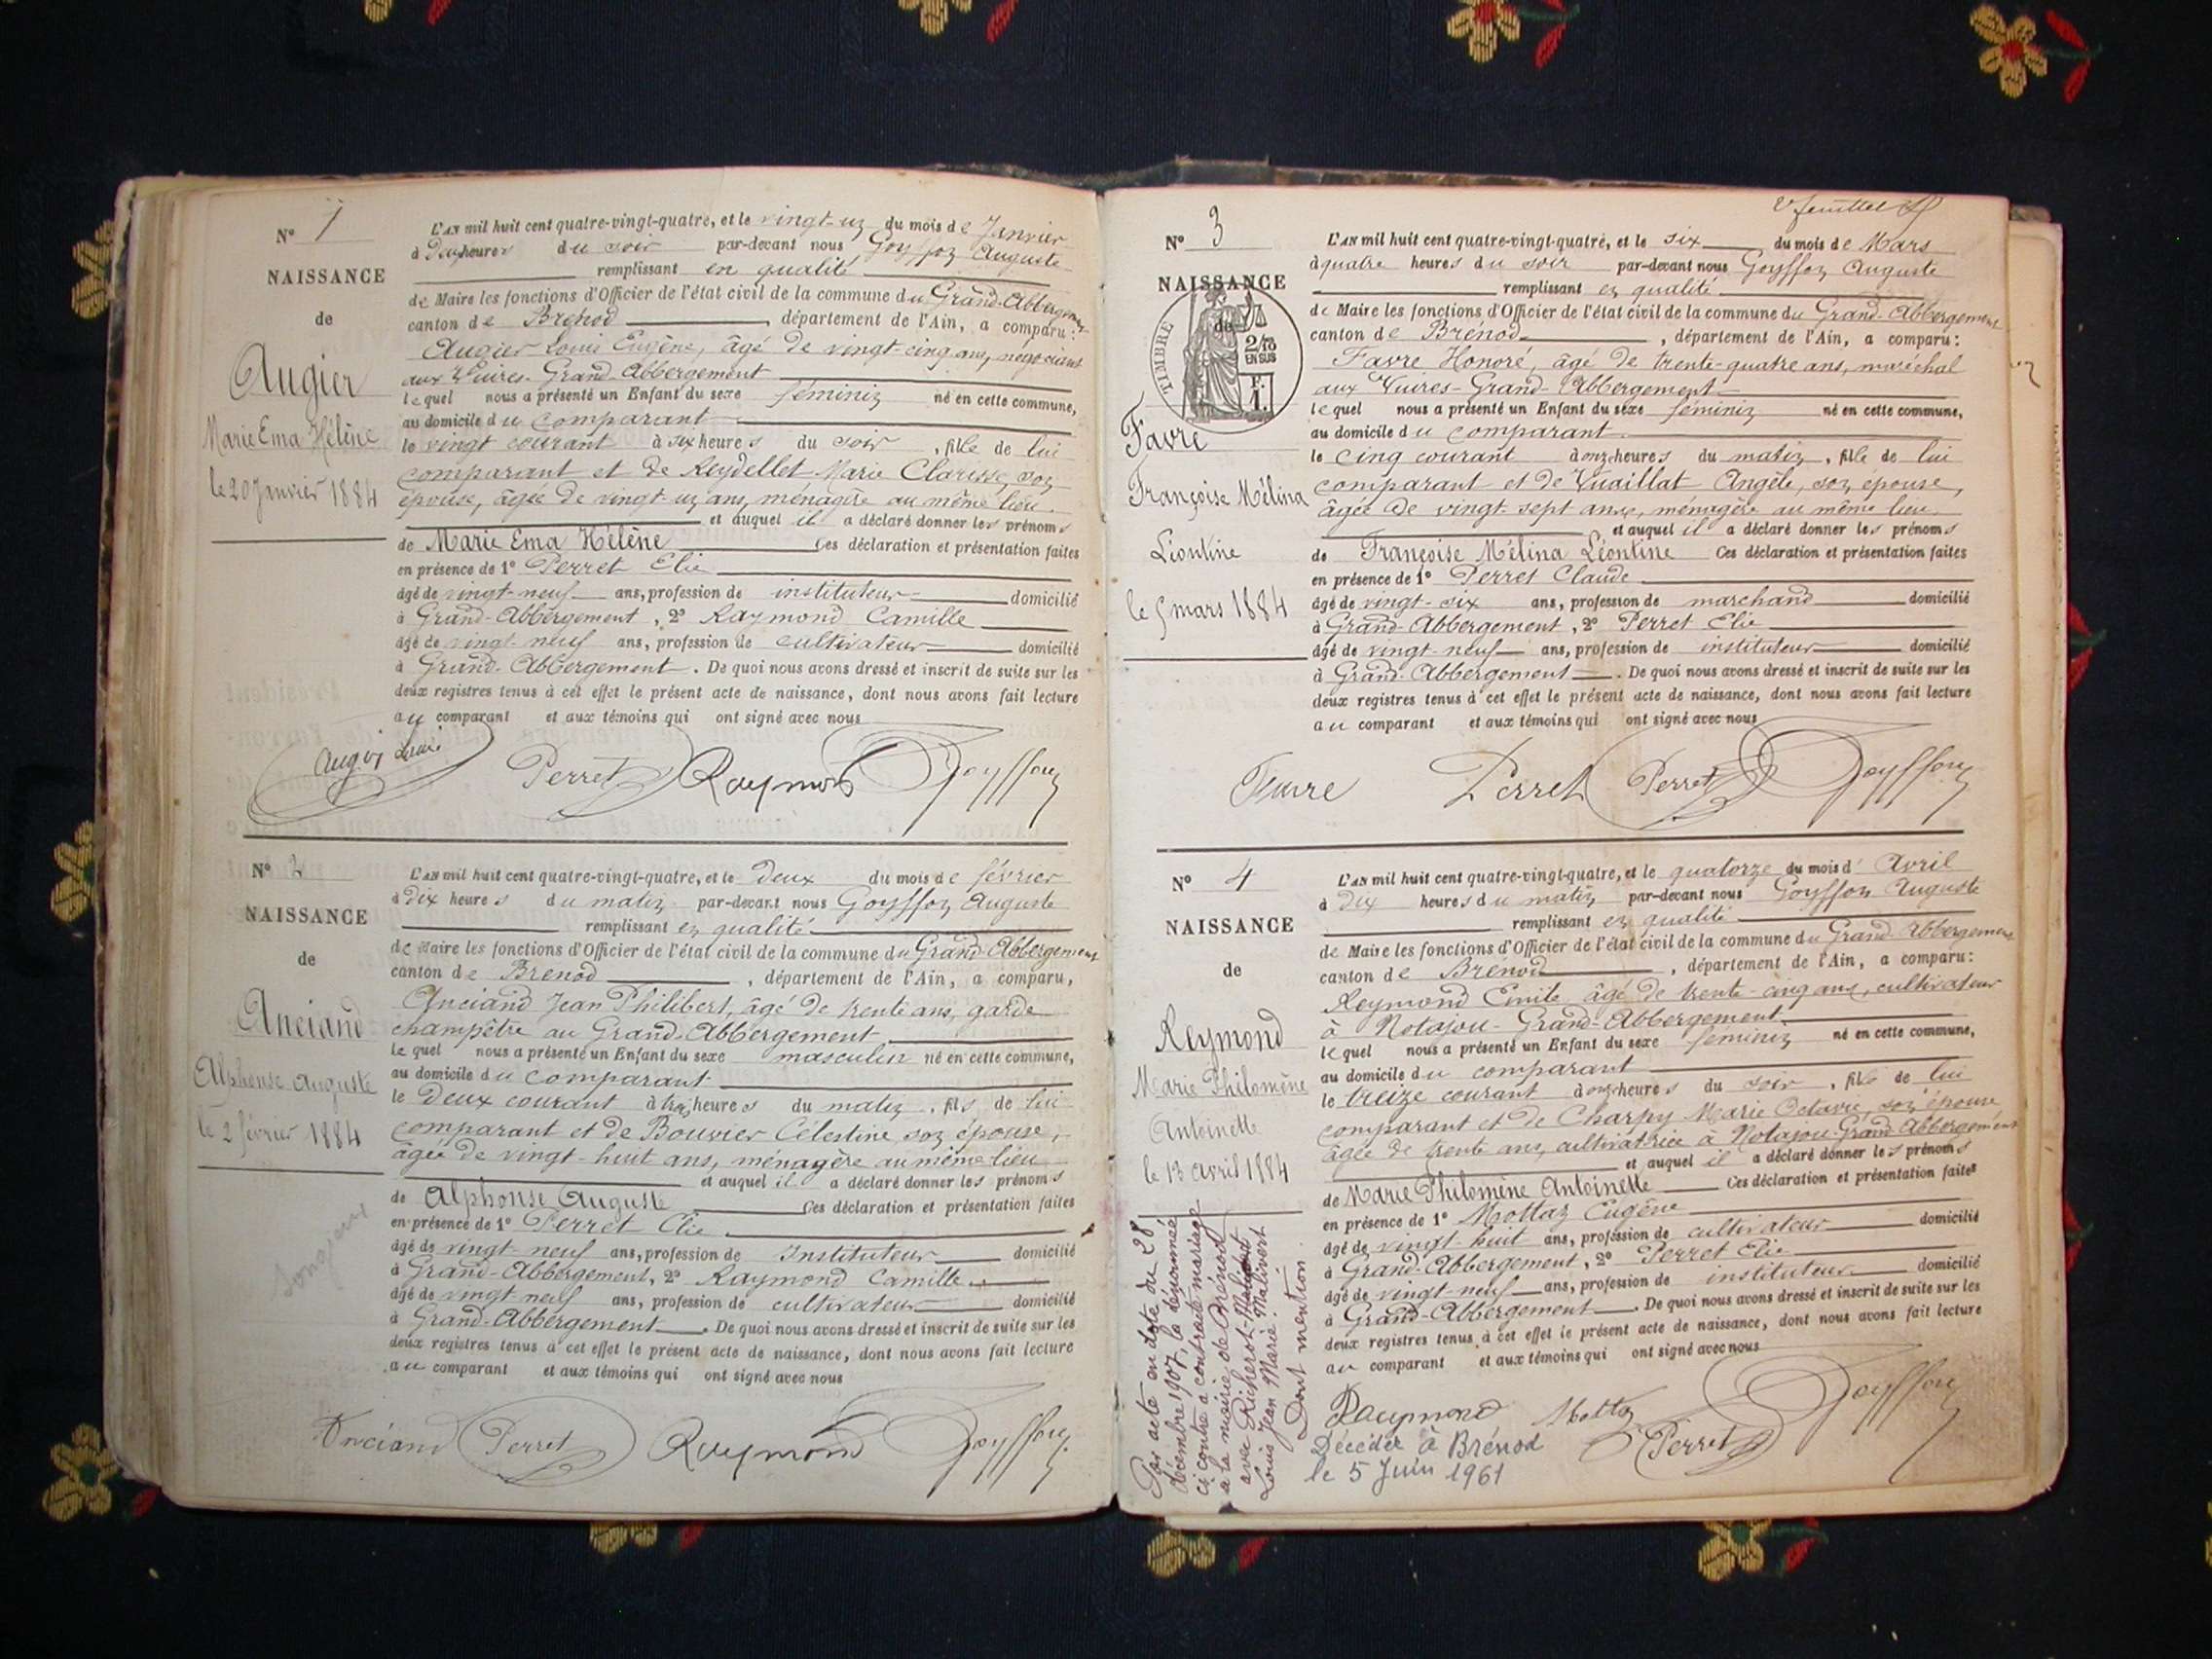 N° 1
NAISSANCE
de
Augier
Marie Ema Hélène
le 20 Janvier 1884
L'AN mil huit cent quatre-vingt-quatre, et le vingt-un du mois de Janvier
à Deux heures du soir par-devant nous Goyffon Auguste
remplissant en qualité
de Maire les fonctions d'Officier de l'état civil de la commune du Grand-Abbergement
canton de Brénod, département de l'Ain, a comparu :
Augier Louis Eugène, âgé de vingt-cinq ans, négociant
aux Vuires-Grand-Abbergement
lequel nous a présenté un Enfant du sexe féminin né en cette commune,
au domicile du comparant
le vingt courant à six heures du soir, fille de lui
comparant et de Reydellet Marie Clarisse, son
épouse, âgée de vingt-un ans, ménagère au même lieu.
et auquel il a déclaré donner les prénoms
de Marie Ema Hélène Ces déclaration et présentation faites
en présence de 1° Perret Elie
âgé de vingt-neuf ans, profession de instituteur domicilié
à Grand-Abbergement, 2° Raymond Camille
âgé de vingt-neuf ans, profession de cultivateur domicilié
à Grand-Abbergement. De quoi nous avons dressé et inscrit de suite sur les
deux registres tenus à cet effet le présent acte de naissance, dont nous avons fait lecture
au comparant et aux témoins qui ont signé avec nous
Perret Raymond Goyffon
N° 2
NAISSANCE
de
Anciand
Alphonse Auguste
le 2 février 1884
L'AN mil huit cent quatre-vingt-quatre, et le deux du mois de février
à Dix heures du matin par-devant nous Goyffon Auguste
remplissant en qualité
de Maire les fonctions d'Officier de l'état civil de la commune du Grand-Abbergement
canton de Brenod, département de l'Ain, a comparu,
Anciand Jean Philibert, âgé de trente ans, garde
champêtre au Grand-Abbergement
lequel nous a présenté un Enfant du sexe masculin né en cette commune,
au domicile du comparant
le Deux courant à trois heures du matin, fils de lui
comparant et de Bouvier Célestine son épouse,
âgée de vingt-huit ans, ménagère au même lieu
et auquel il a déclaré donner les prénoms
de Alphonse Auguste Ces déclaration et présentation faites
en présence de 1° Perret Elie
âgé de vingt-neuf ans, profession de Instituteur domicilié
à Grand-Abbergement, 2° Raymond Camille
âgé de vingt-neuf ans, profession de cultivateur domicilié
à Grand-Abbergement. De quoi nous avons dressé et inscrit de suite sur les
deux registres tenus à cet effet le présent acte de naissance, dont nous avons fait lecture
au comparant et aux témoins qui ont signé avec nous
Anciand Perret Raymond Goyffon
N° 3
NAISSANCE
de
TIMBRE
2/10
EN SUS
F.
1.
Favre
Françoise Mélina
Léontine
le 5 mars 1884
2e feuillet
L'AN mil huit cent quatre-vingt-quatre, et le six du mois de Mars
à quatre heures du soir par-devant nous Goyffon Auguste
remplissant en qualité
de Maire les fonctions d'Officier de l'état civil de la commune du Grand-Abbergement
canton de Brénod, département de l'Ain, a comparu :
Favre Honoré, âgé de trente-quatre ans, maréchal
aux Vuires-Grand-Abbergement
lequel nous a présenté un Enfant du sexe féminin né en cette commune,
au domicile du comparant
le cinq courant à onze heures du matin, fille de lui
comparant et de Vuaillat Angèle, son épouse,
âgée de vingt-sept ans, ménagère au même lieu
et auquel il a déclaré donner les prénoms
de Françoise Mélina Léontine Ces déclaration et présentation faites
en présence de 1° Perret Claude
âgé de vingt-six ans, profession de marchand domicilié
à Grand-Abbergement, 2° Perret Elie
âgé de vingt-neuf ans, profession de instituteur domicilié
à Grand-Abbergement. De quoi nous avons dressé et inscrit de suite sur les
deux registres tenus à cet effet le présent acte de naissance, dont nous avons fait lecture
au comparant et aux témoins qui ont signé avec nous
Favre Perret Perret Goyffon
N° 4
NAISSANCE
de
Reymond
Marie Philomène
Antoinette
le 13 avril 1884
L'AN mil huit cent quatre-vingt-quatre, et le quatorze du mois d'Avril
à Dix heures du matin par-devant nous Goyffon Auguste
remplissant en qualité
de Maire les fonctions d'Officier de l'état civil de la commune du Grand-Abbergement
canton de Brenod, département de l'Ain, a comparu :
Reymond Emile âgé de trente-cinq ans, cultivateur
à Notajou-Grand-Abbergement
lequel nous a présenté un Enfant du sexe féminin né en cette commune,
au domicile du comparant
le treize courant à onze heures du soir, fille de lui
comparant et de Charpy Marie Octavie, son épouse
âgée de trente ans, cultivatrice à Notajou-Grand Abbergement
et auquel il a déclaré donner les prénoms
de Marie Philomène Antoinette Ces déclaration et présentation faites
en présence de 1° Mottaz Eugène
âgé de vingt-huit ans, profession de cultivateur domicilié
à Grand-Abbergement, 2° Perret Elie
âgé de vingt-neuf ans, profession de instituteur domicilié
à Grand-Abbergement. De quoi nous avons dressé et inscrit de suite sur les
deux registres tenus à cet effet le présent acte de naissance, dont nous avons fait lecture
au comparant et aux témoins qui ont signé avec nous
Raymond Mottaz Perret Goyffon
Par acte en date du 28
décembre 1907, la dénommée
ci contre a contracté mariage
à la mairie de Brénod
avec Richerot-Malivert
Louis Jean Marie. Malivert
Dont mention.
Décédée à Brénod
le 5 Juin 1961